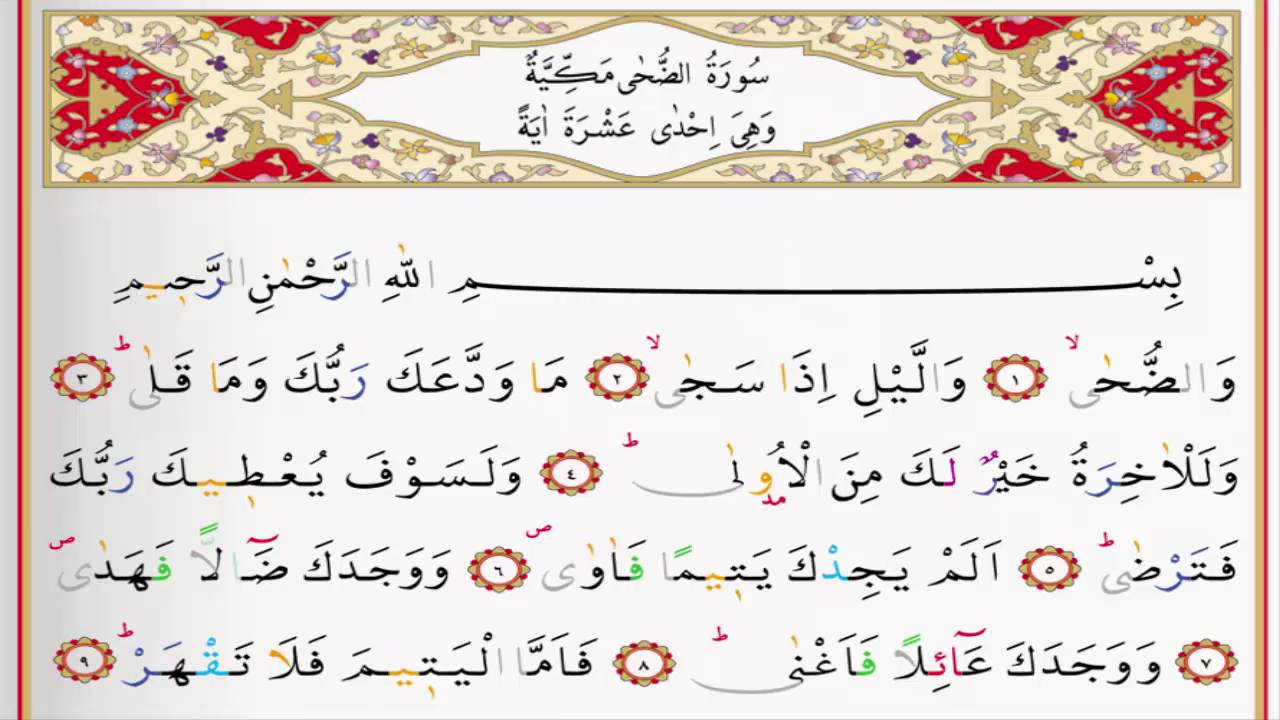 سُورَةُ الضُّحٰى مَكِّيَّةٌ
وَهِىَ اِحْدٰى عَشْرَةَ اٰيَةً
بِسْمِ اللّٰهِ الرَّحْمٰنِ الرَّحٖيمِ
وَالضُّحٰىۙ ١ وَالَّيْلِ اِذَا سَجٰىۙ ٢ مَا وَدَّعَكَ رَبُّكَ وَمَا قَلٰىؕ ٣
وَلَلْاٰخِرَةُ خَيْرٌ لَكَ مِنَ الْاُو۫لٰىؕ ٤ وَلَسَوْفَ يُعْطٖيكَ رَبُّكَ
فَتَرْضٰىؕ ٥ اَلَمْ يَجِدْكَ يَتٖيمًا فَاٰوٰىࣕ ٦ وَوَجَدَكَ ضَٓالًّا فَهَدٰىࣕ
٧ وَوَجَدَكَ عَٓائِلًا فَاَغْنٰىؕ ٨ فَاَمَّا الْيَتٖيمَ فَلَا تَقْهَرْؕ ٩